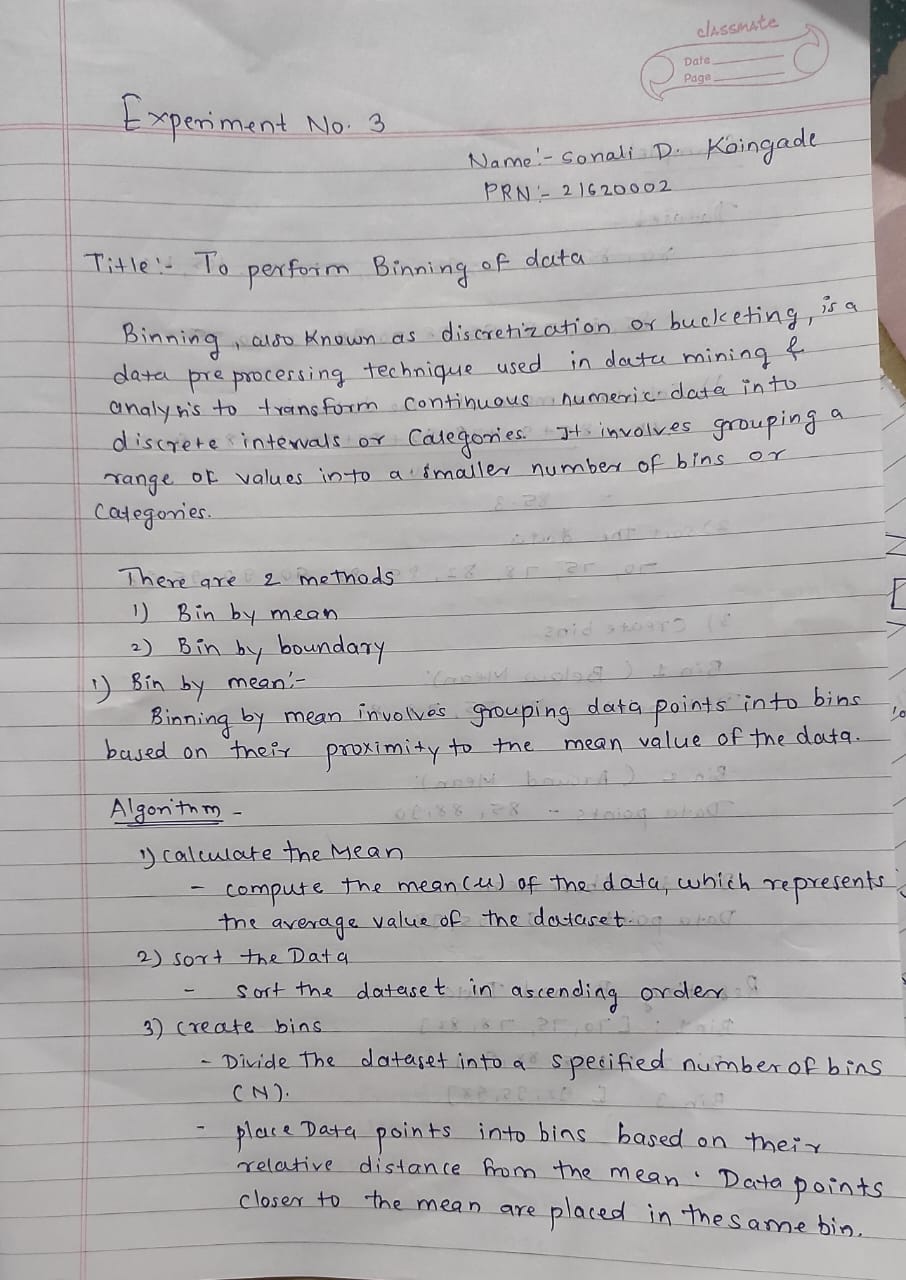 classmate
Date
Page
Experiment No. 3
Name:- Sonali D. Koingade
PRN:- 21620002
Title:- To perform Binning of data
Binning, also known as discretization or bucketing, is a
data preprocessing technique used in data mining &
analysis to transform continuous numeric data into
discrete intervals or Categories. It involves grouping a
range of values into a smaller number of bins or
Categories.
There are 2 methods
1) Bin by mean
2) Bin by boundary
1) Bin by mean:-
Binning by mean involves grouping data points into bins
based on their proximity to the mean value of the data.
Algorithm -
1) calculate the Mean
- compute the mean (u) of the data, which represents
the average value of the dataset.
2) sort the Data
- sort the dataset in ascending order
3) Create bins
- Divide The dataset into a specified number of bins
(N).
- place Data points into bins based on their
relative distance from the mean. Data points
closer to the mean are placed in the same bin.